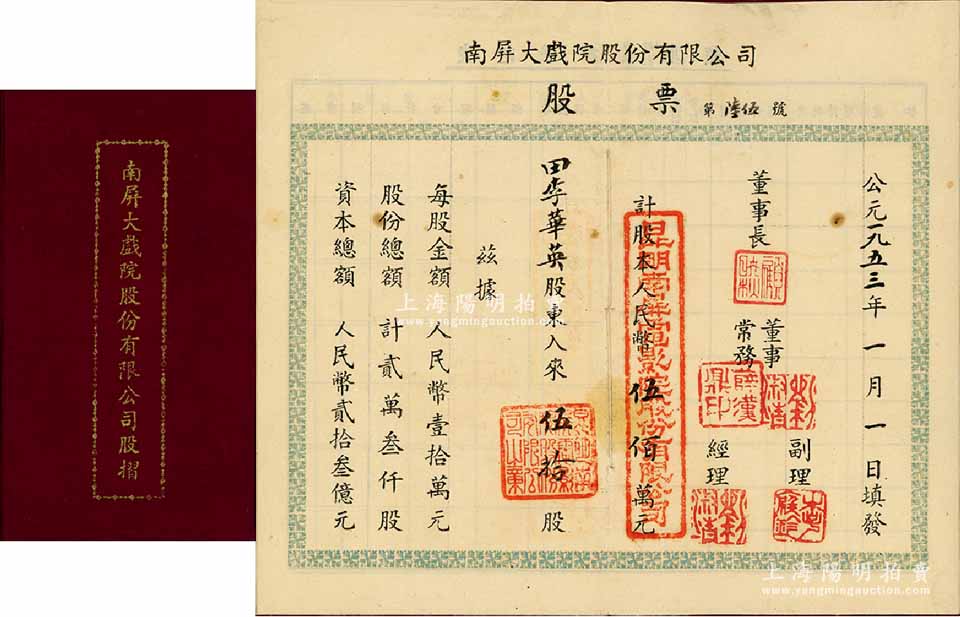 南屏大戲院股份有限公司股摺
南屏大戲院股份有限公司
股票
第陸伍號
資本總額 人民幣貳拾叁億元
股份總額 計貳萬叁仟股
每股金額 人民幣壹拾萬元
茲據
田李華英股東入來伍拾股
計股本人民幣伍佰萬元
昆明南屏電影院股份有限公司
董事長
常務董事
經理
副理
公元一九五三年一月一日填發
上海陽明拍賣
www.yangmingauction.com
上海陽明拍賣
www.yangmingauction.com